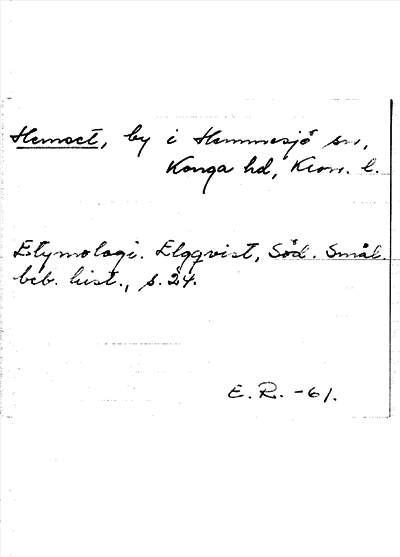 Hemset, by i Hemmesjö sn,
Konga hd, Kron. l.
Etymologi. Elgqvist, Söd. Smål.
beb. hist., s. 24.
E. R. -61.